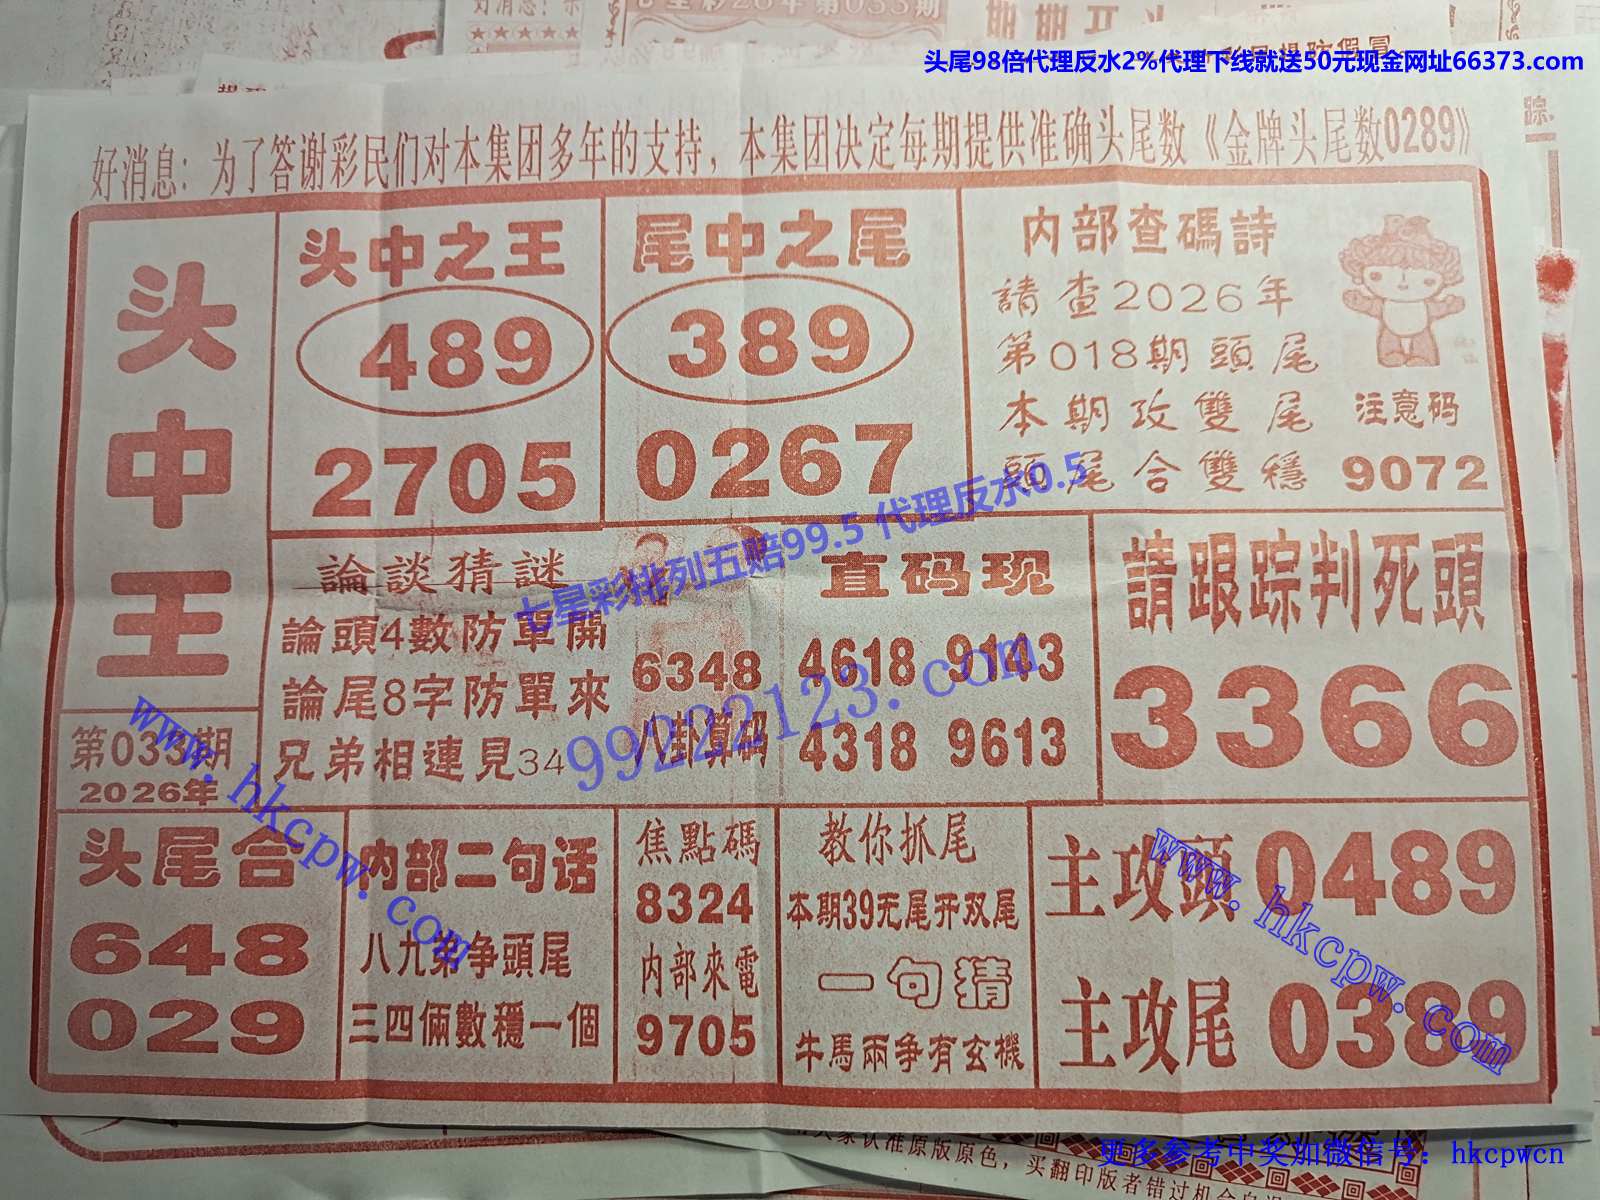 好消息：
七星彩26年第033期
头尾98倍代理反水2%代理下线就送50元现金网址66373.com
踪
好消息：为了答谢彩民们对本集团多年的支持，本集团决定每期提供准确头尾数《金牌头尾数0289》
头中王
第033期
2026年
头中之王
489
2705
尾中之尾
389
0267
内部查碼詩
請查2026年
第018期頭尾
本期攻雙尾
頭尾合雙穩
注意码
9072
論談猜謎
論頭4數防單開
論尾8字防單來
兄弟相連見34
6348
八卦算码
直码现
4618 9143
4318 9613
請跟踪判死頭
3366
七星彩排列五赔99.5 代理反水0.5
99222123.com
www.hkcpw.com
头尾合
648
029
内部二句话
八九弟争頭尾
三四倆數穩一個
焦點碼
8324
内部來電
9705
教你抓尾
本期39无尾开双尾
一句猜
牛馬兩争有玄機
主攻頭 0489
主攻尾 0389
www.hkcpw.com
大家认准原版原色，买翻印版者错过机会自
更多参考中奖加微信号：hkcpwcn